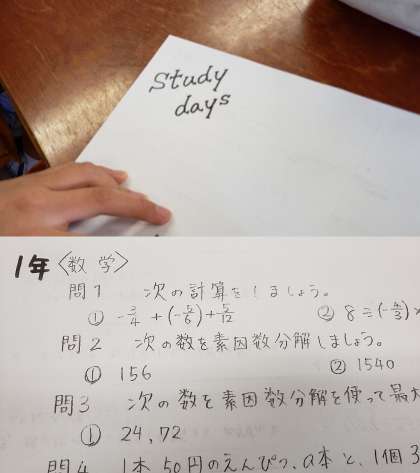 Study
days
1年〈数学〉
問1 次の計算をしましょう。
① -3/4 + (-5/6) + 5/12 ② 8 ÷ (-4/3) ×
問2 次の数を素因数分解しましょう。
① 156 ② 1540
問3 次の数を素因数分解を使って最大
① 24, 72
問4 1本50円のえんぴつ、a本と、1個